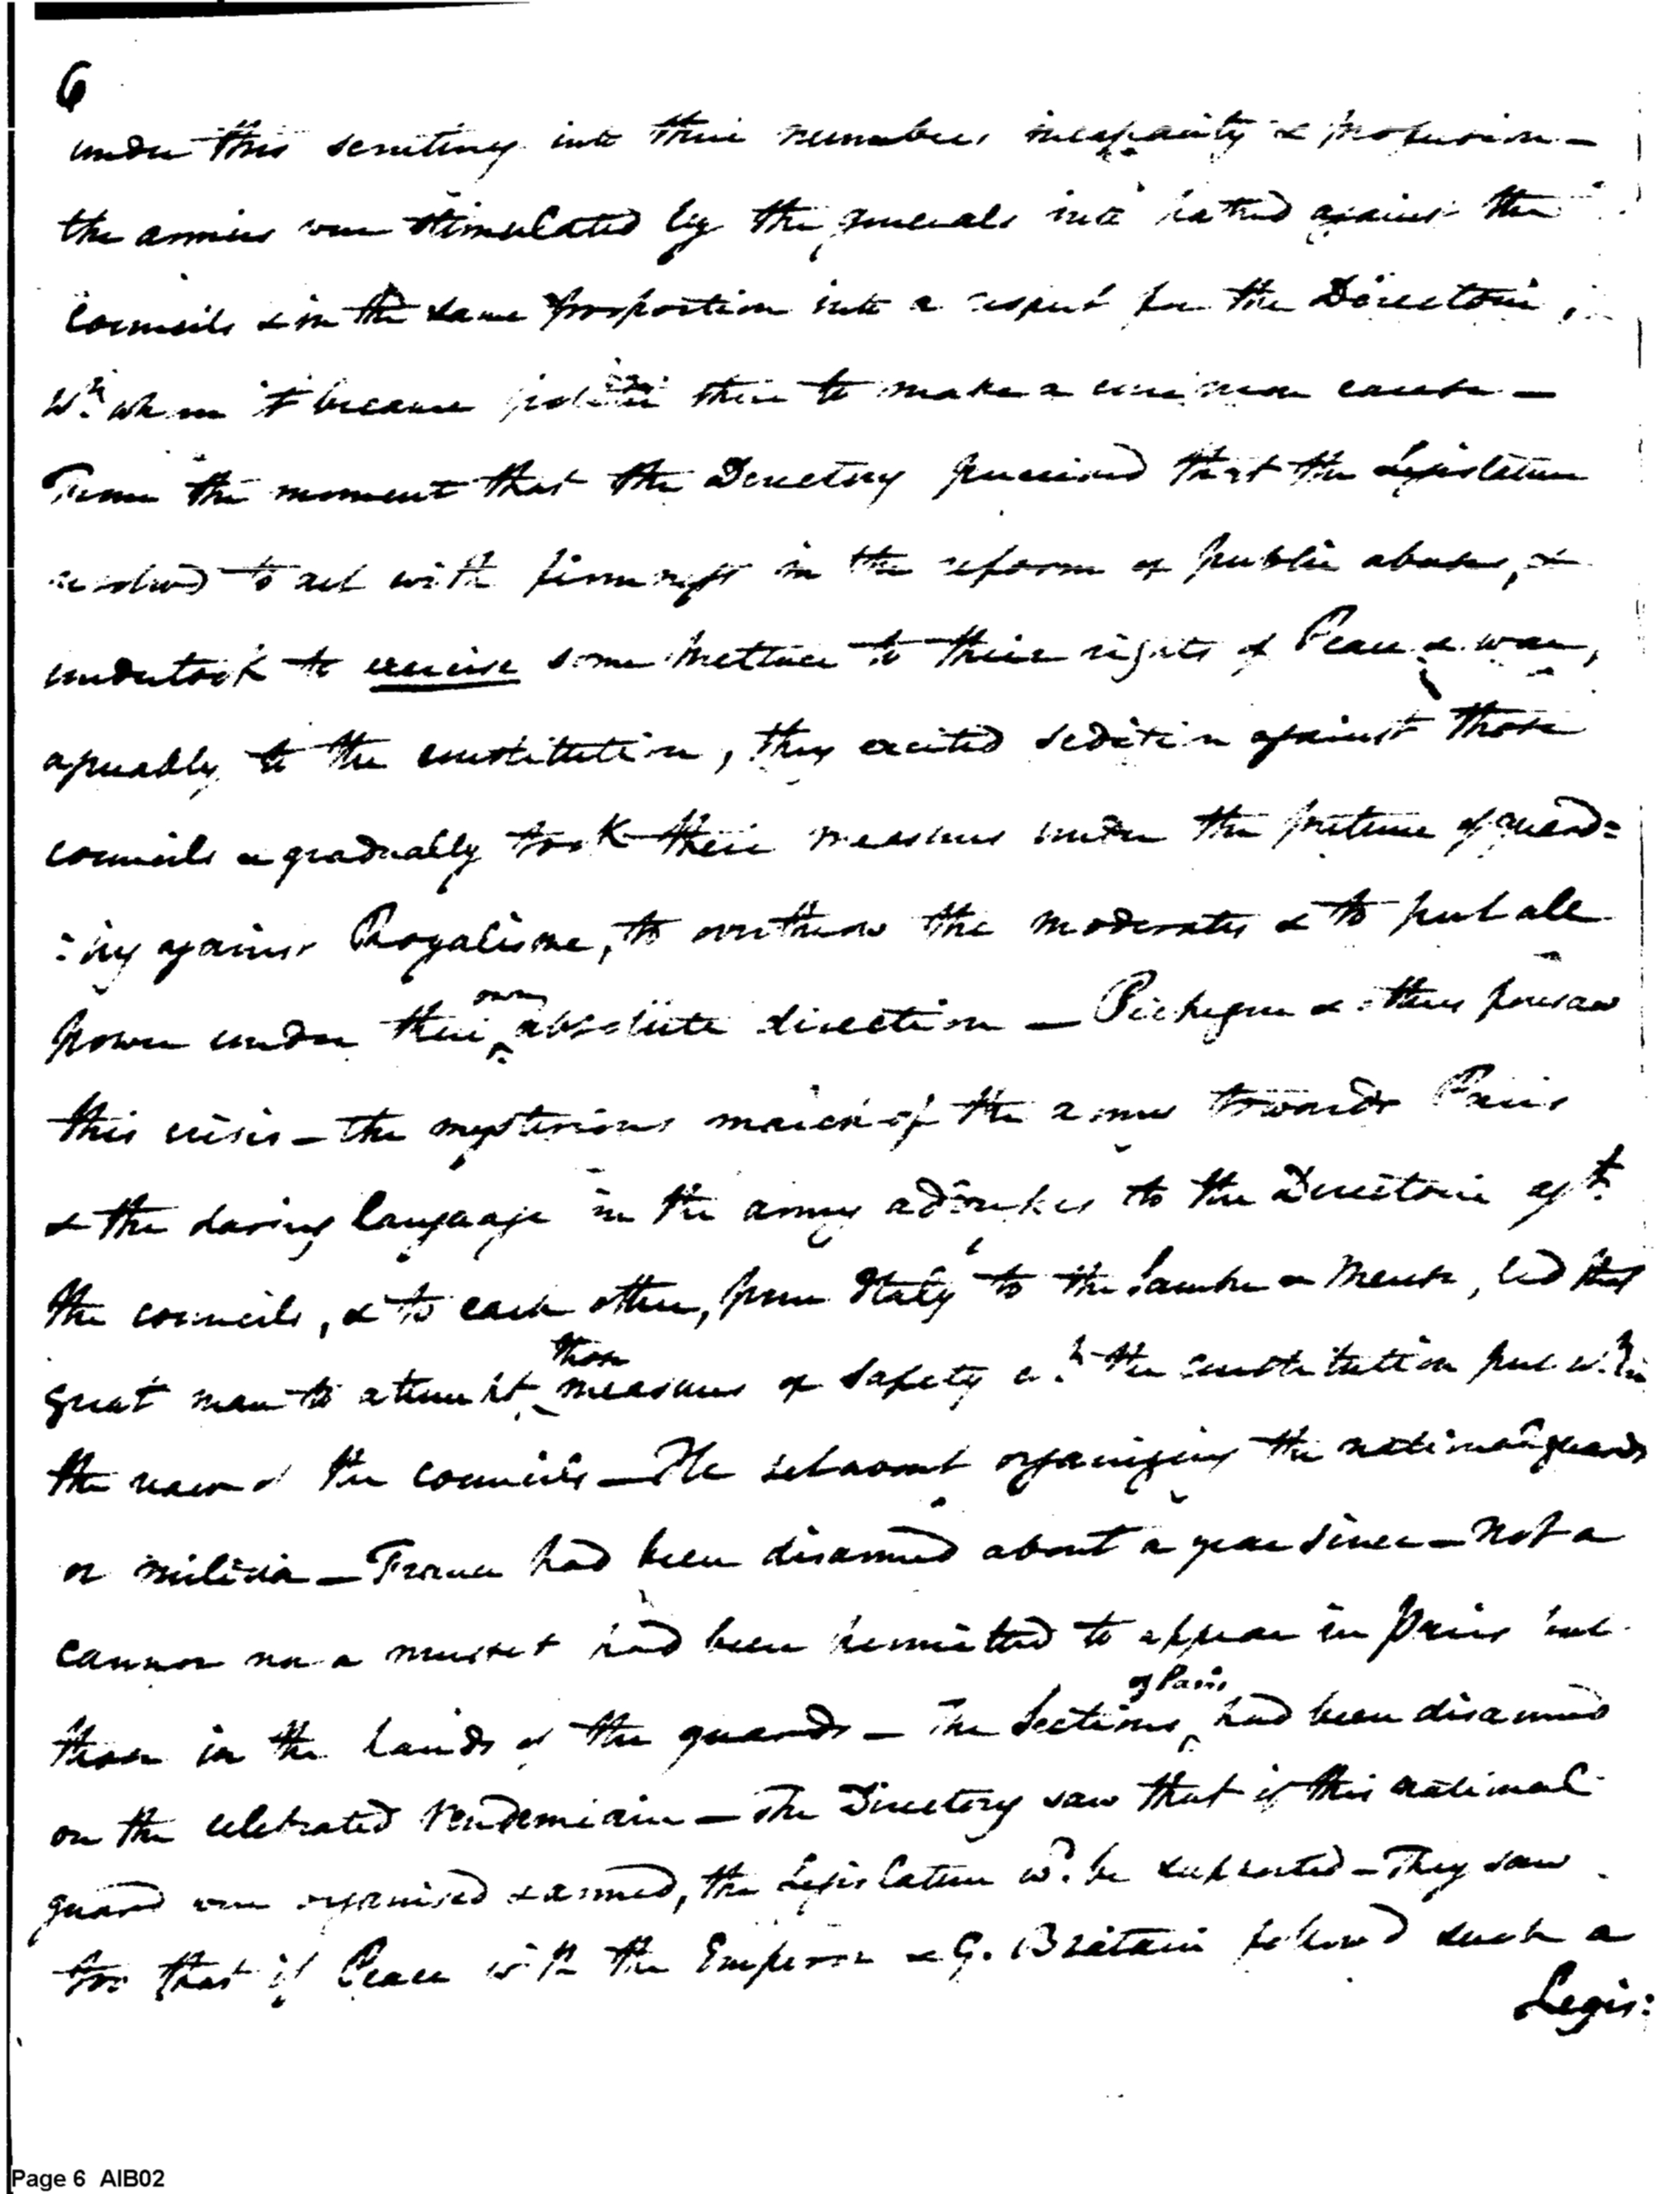 6
under this scrutiny into their number incapacity & profusion —
the armies were stimulated by the generals into hatred against the
Councils & in the same proportion into a respect for the Directoire,
Wh. whom it became them to make a common cause —
From the moment that the Directory perceived that the Legislature
resolved to act with firmness in the reform of public abuses, &
undertook to exercise some to their rights of Peace & war,
agreeably to the constitution, they excited sedition against those
councils & gradually took their measures under the pretence of guard=
:ing against Royalisme, to overthrow the moderates & to put all
power under their own absolute direction — Pichegru & others foresaw
this crisis — the mysterious march of the armies towards Paris
& the daring language in the army addresses to the Directoire agt.
the councils, & to each other, from Italy to the Sambre & Meuse, led that
great man to attempt those measures of safety wh. the constitution put wthin
the reach of the councils — He set about organizing the national guards
or militia — France had been disarmed about a year since — Not a
cannon nor a musket had been permitted to appear in Paris but
those in the hands of the guards — The Sections of Paris had been disarmed
on the celebrated Vendemiaire — The Directory saw that if this national
guard were organised & armed, the Legislature wd. be supported — They saw
too that if Peace with the Emperor & G. Britain followed such a
Legis:
Page 6 AIB02